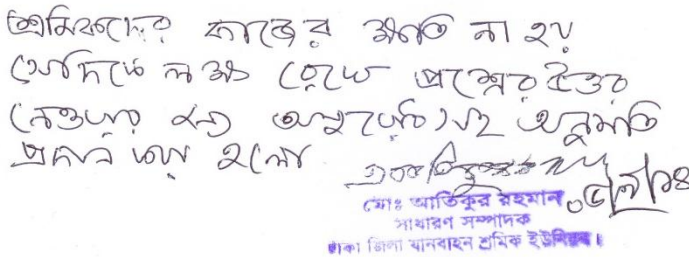 শ্রমিকদের কাজের ক্ষতি না হয়
সেদিকে লক্ষ রেখে প্রশ্নের উত্তর
নেওয়ার জন্য অনুমতি
প্রদান করা হলো
মোঃ আতিকুর রহমান
সাধারণ সম্পাদক
ঢাকা জিলা যানবাহন শ্রমিক ইউনিয়ন।